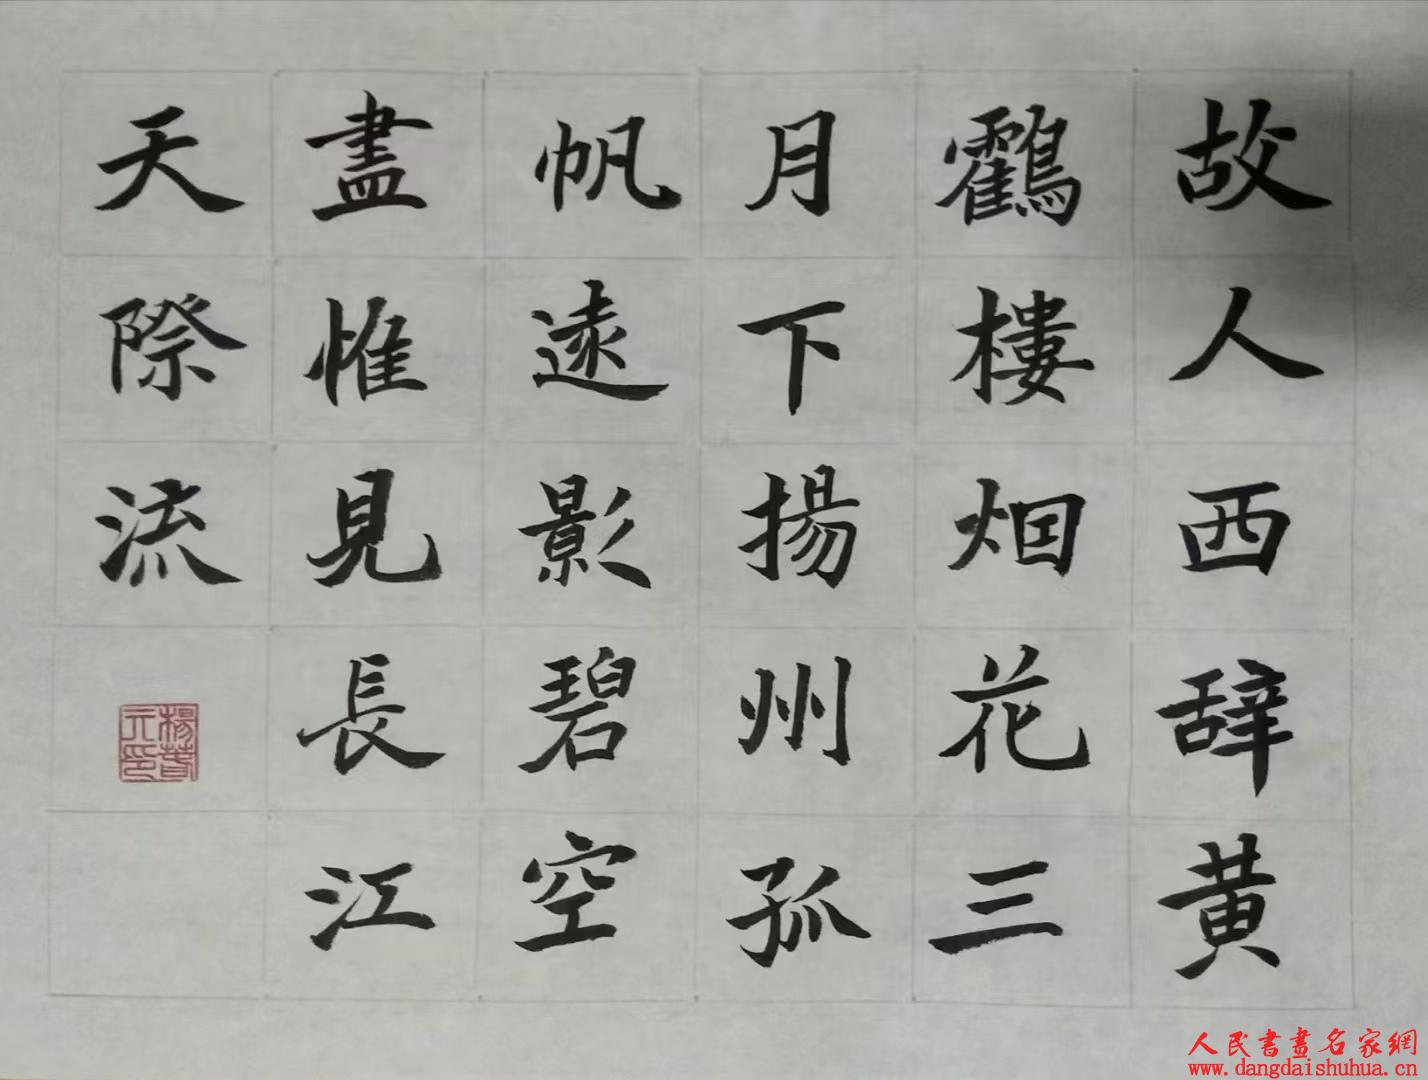 故人西辞黄
鸖樓烟花三
月下揚州孤
帆逺影碧空
盡惟見長江
天際流
人民書畫名家網
www.dangdaishuhua.cn